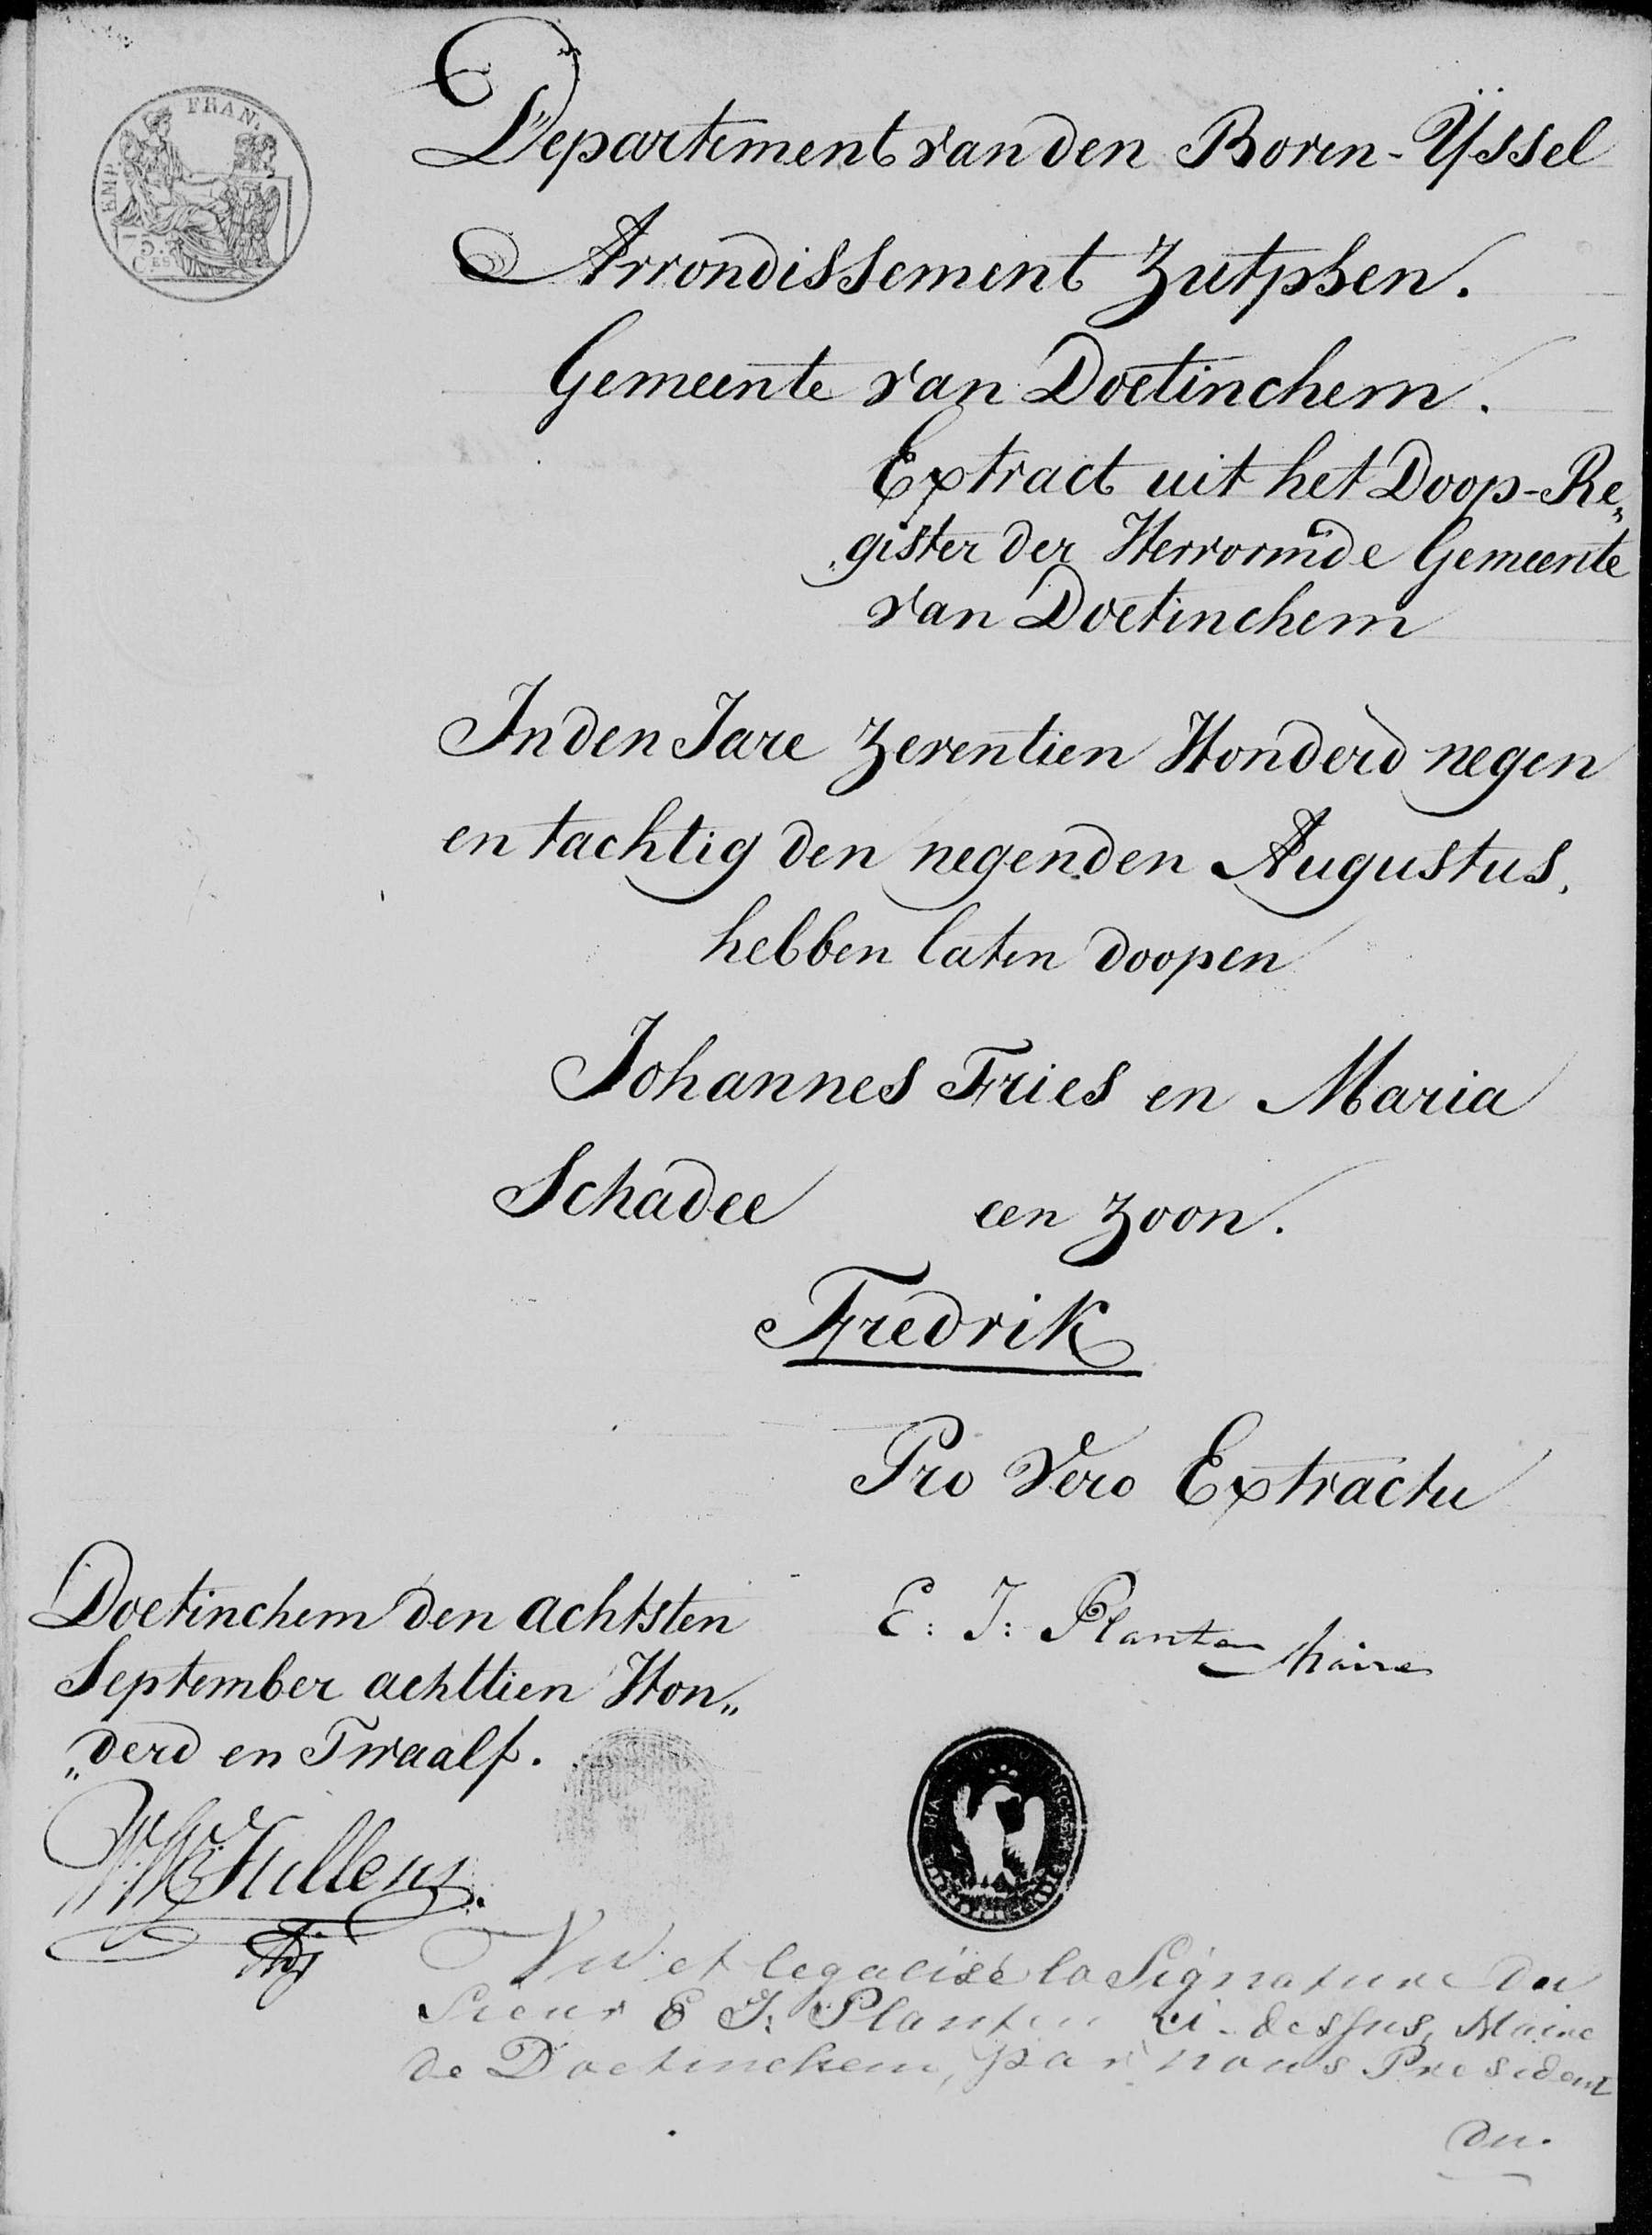 EMP. FRAN.
75
Departement van den Boven-Ÿssel
Arrondissement Zutphen.
Gemeente van Doetinchem.
Extract uit het Doop-Re„
„gister der Hervormde Gemeente
van Doetinchem
In den Jare Zeventien Honderd negen
en tachtig den negenden Augustus.
hebben laten doopen
Johannes Fries en Maria
Schadee een Zoon.
Fredrik
Pro Vero Extractu
E: J: Planten Maire
Doetinchem den achtsten
September achttien Hon„
„derd en Twaalf.
Adj
Vu et legalisé la Signature du
Sieur E J: Planten ci-dessus, Maire
de Doetinchem, par nous President
du.